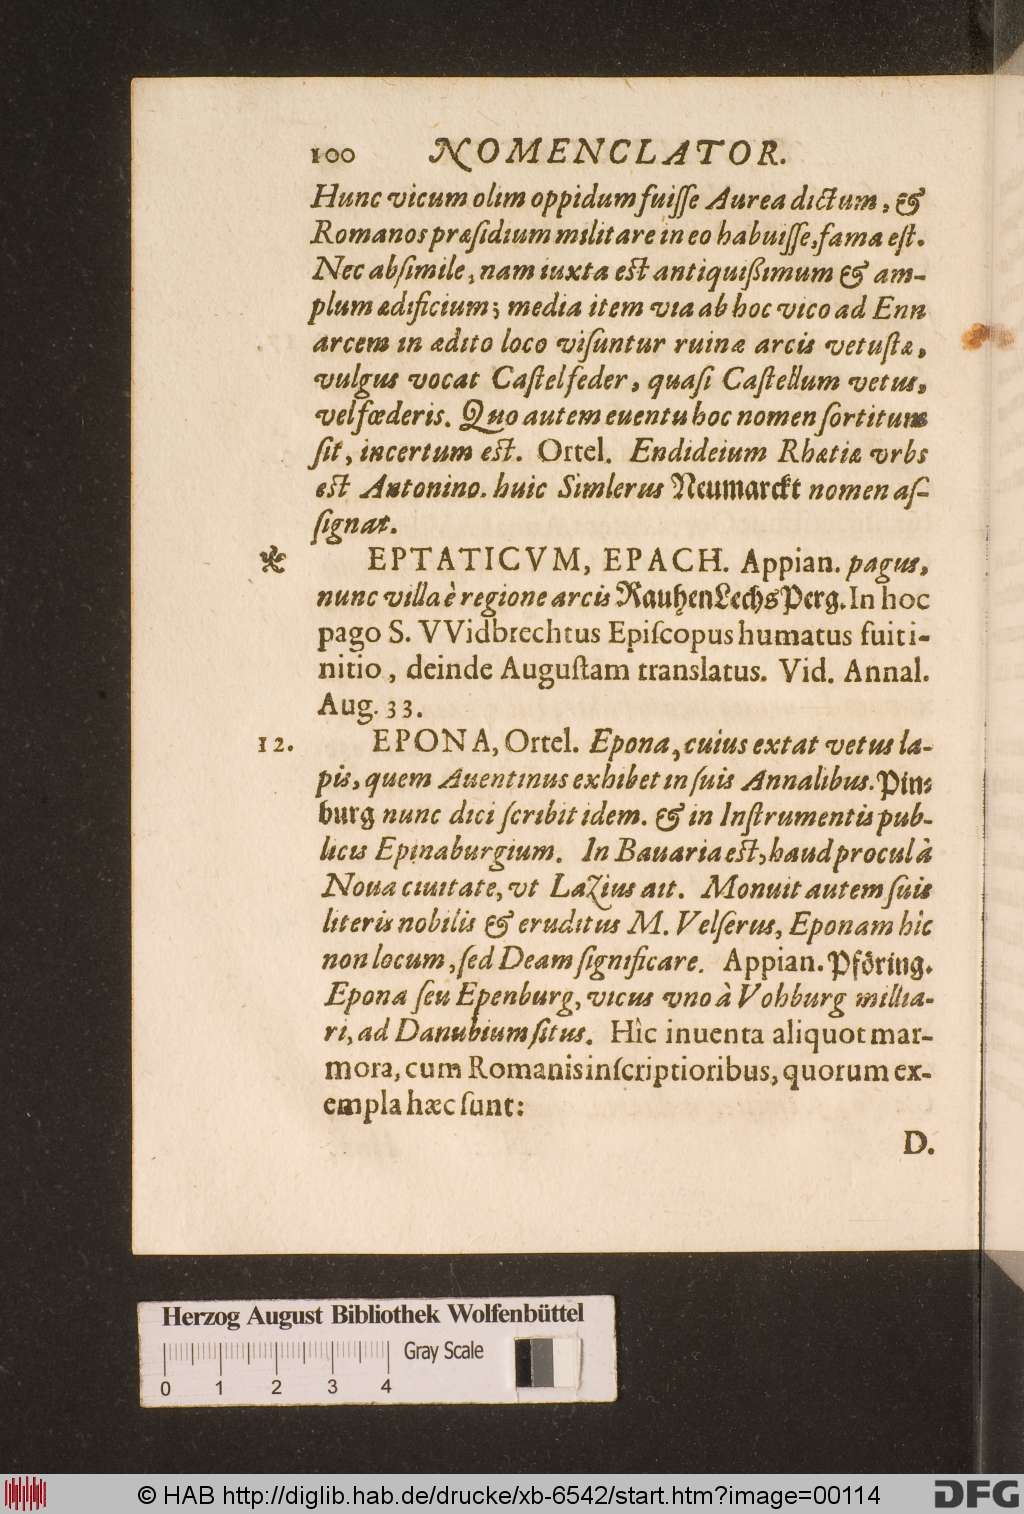 100 NOMENCLATOR.
Hunc vicum olim oppidum fuiſſe Aurea dictum, &
Romanos præſidium militare in eo habuiſſe, fama eſt.
Nec abſimile, nam iuxta eſt antiquißimum & am-
plum ædificium; media item via ab hoc vico ad Enn
arcem in ædito loco viſuntur ruinæ arcis vetuſtæ,
vulgus vocat Caſtelfeder, quaſi Caſtellum vetus,
vel fœderis. Quo autem euentu hoc nomen ſortitum
ſit, incertum eſt. Ortel. Endideium Rhætiæ vrbs
eſt Antonino. huic Simlerus Neumarckt nomen aſ-
ſignat.
EPTATICVM, EPACH. Appian. pagus,
nunc villa è regione arcis RauhenLechsPerg. In hoc
pago S. VVidbrechtus Epiſcopus humatus fuit i-
nitio, deinde Auguſtam translatus. Vid. Annal.
Aug. 33.
12. EPONA, Ortel. Epona, cuius extat vetus la-
pis, quem Auentinus exhibet in ſuis Annalibus. Pin-
burg nunc dici ſcribit idem. & in Inſtrumentis pub-
licis Epinaburgium. In Bauaria eſt, haud procul à
Noua ciuitate, vt Lazius ait. Monuit autem ſuis
literis nobilis & eruditus M. Velſerus, Eponam hîc
non locum, ſed Deam ſignificare. Appian. Pföring.
Epona ſeu Epenburg, vicus vno à Vohburg millia-
ri, ad Danubium ſitus. Hîc inuenta aliquot mar-
mora, cum Romanis inſcriptioribus, quorum ex-
empla hæc ſunt:
D.
Herzog August Bibliothek Wolfenbüttel
Gray Scale
0 1 2 3 4
© HAB http://diglib.hab.de/drucke/xb-6542/start.htm?image=00114
DFG